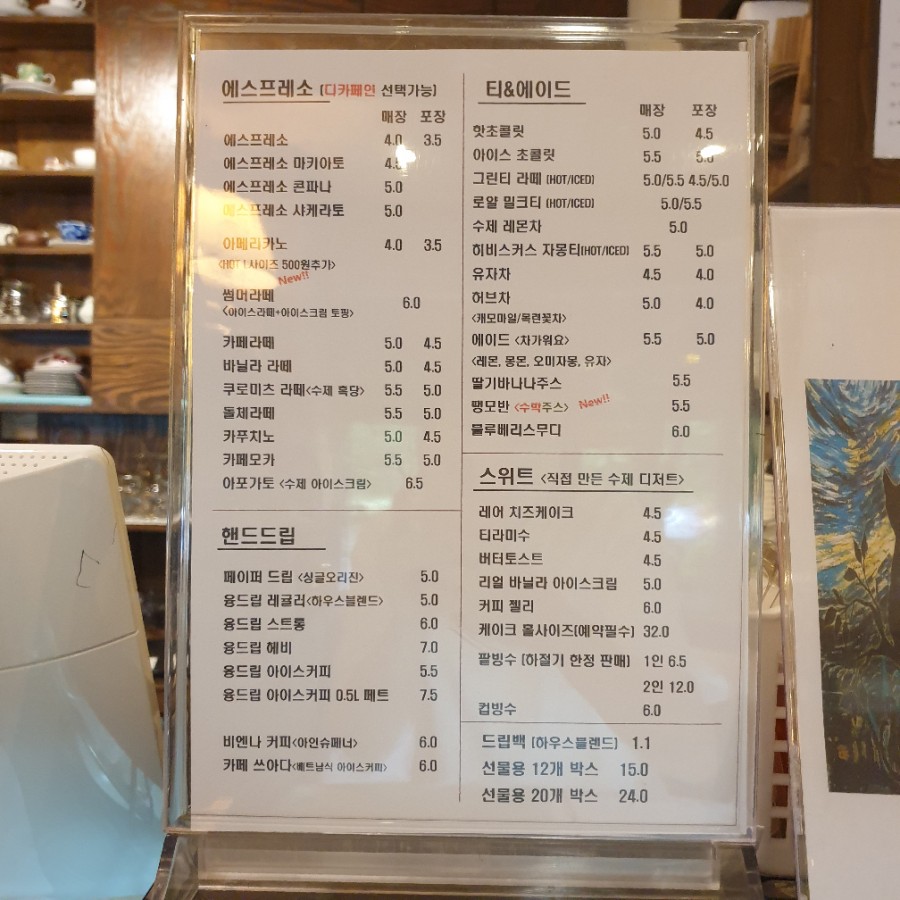 에스프레소 (디카페인 선택가능)
매장 포장
에스프레소 4.0 3.5
에스프레소 마키아토 4.5
에스프레소 콘파나 5.0
에스프레소 샤케라토 5.0
아메리카노 4.0 3.5
<HOT L사이즈 500원추가>
New!!
썸머라떼 6.0
<아이스라떼+아이스크림 토핑>
카페라떼 5.0 4.5
바닐라 라떼 5.0 4.5
쿠로미츠 라떼<수제 흑당> 5.5 5.0
돌체라떼 5.5 5.0
카푸치노 5.0 4.5
카페모카 5.5 5.0
아포가토 <수제 아이스크림> 6.5
핸드드립
페이퍼 드립 <싱글오리진> 5.0
융드립 레귤러<하우스블렌드> 5.0
융드립 스트롱 6.0
융드립 헤비 7.0
융드립 아이스커피 5.5
융드립 아이스커피 0.5L 페트 7.5
비엔나 커피<아인슈페너> 6.0
카페 쓰아다<베트남식 아이스커피> 6.0
티&에이드
매장 포장
핫초콜릿 5.0 4.5
아이스 초콜릿 5.5 5.0
그린티 라떼 (HOT/ICED) 5.0/5.5 4.5/5.0
로얄 밀크티 (HOT/ICED) 5.0/5.5
수제 레몬차 5.0
히비스커스 자몽티(HOT/ICED) 5.5 5.0
유자차 4.5 4.0
허브차 5.0 4.0
<캐모마일/목련꽃차>
에이드 <차가워요> 5.5 5.0
<레몬, 몽몬, 오미자몽, 유자>
딸기바나나주스 5.5
땡모반 <수박주스> New!! 5.5
블루베리스무디 6.0
스위트 <직접 만든 수제 디저트>
레어 치즈케이크 4.5
티라미수 4.5
버터토스트 4.5
리얼 바닐라 아이스크림 5.0
커피 젤리 6.0
케이크 홀사이즈(예약필수) 32.0
팥빙수 (하절기 한정 판매) 1인 6.5
2인 12.0
컵빙수 6.0
드립백 (하우스블렌드) 1.1
선물용 12개 박스 15.0
선물용 20개 박스 24.0